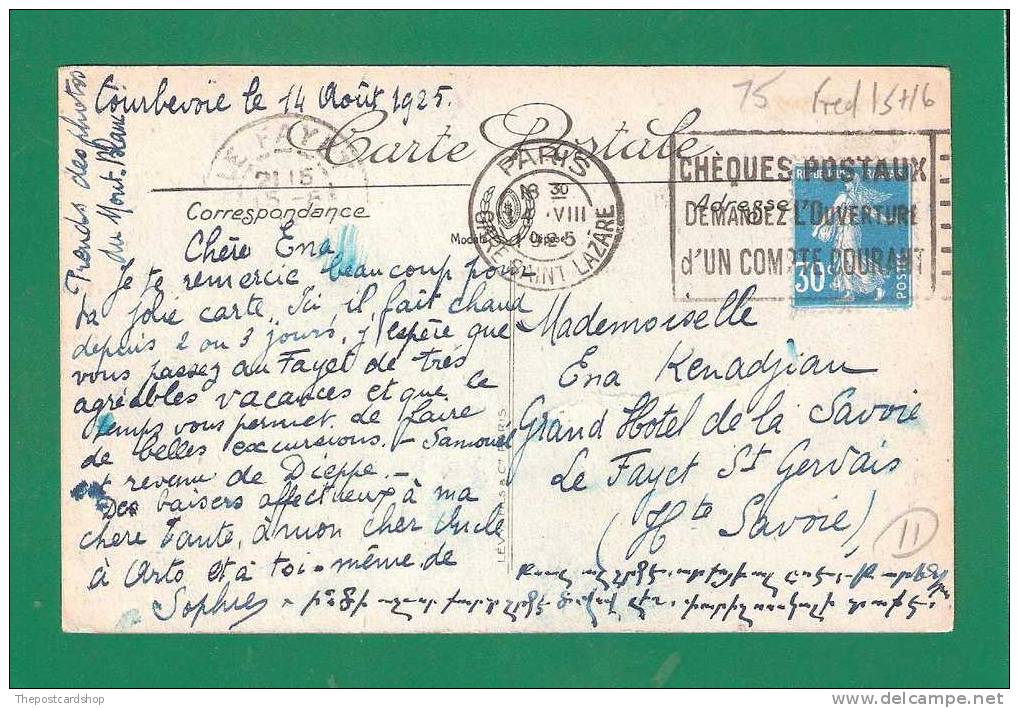 75 Fred 15+16
Courbevoie le 14 Août 1925.
Carte Postale
LE FAYET
21 15
15-8
PARIS
18 30
VIII
1925
GARE SAINT LAZARE
CHÈQUES POSTAUX
DEMANDEZ L'OUVERTURE
d'UN COMPTE COURANT
30
POSTES
Prends des photos
du Mont-Blanc
Correspondance
Adresse
Modèle Déposé
Chère Ena
Je te remercie beaucoup pour
ta jolie carte. Ici il fait chaud
depuis 2 ou 3 jours, j'espère que
vous passez au Fayet de très
agréables vacances et que le
temps vous permet de faire
de belles excursions. - Samouel
est revenu de Dieppe. -
Des baisers affectueux à ma
chère Tante, à mon cher Oncle
à Arto et à toi-même de
Sophie
Mademoiselle
Ena Kenadjian
Grand Hotel de la Savoie
Le Fayet St Gervais
(Hte Savoie)
11
LEVY FILS & Cie PARIS
Thepostcardshop